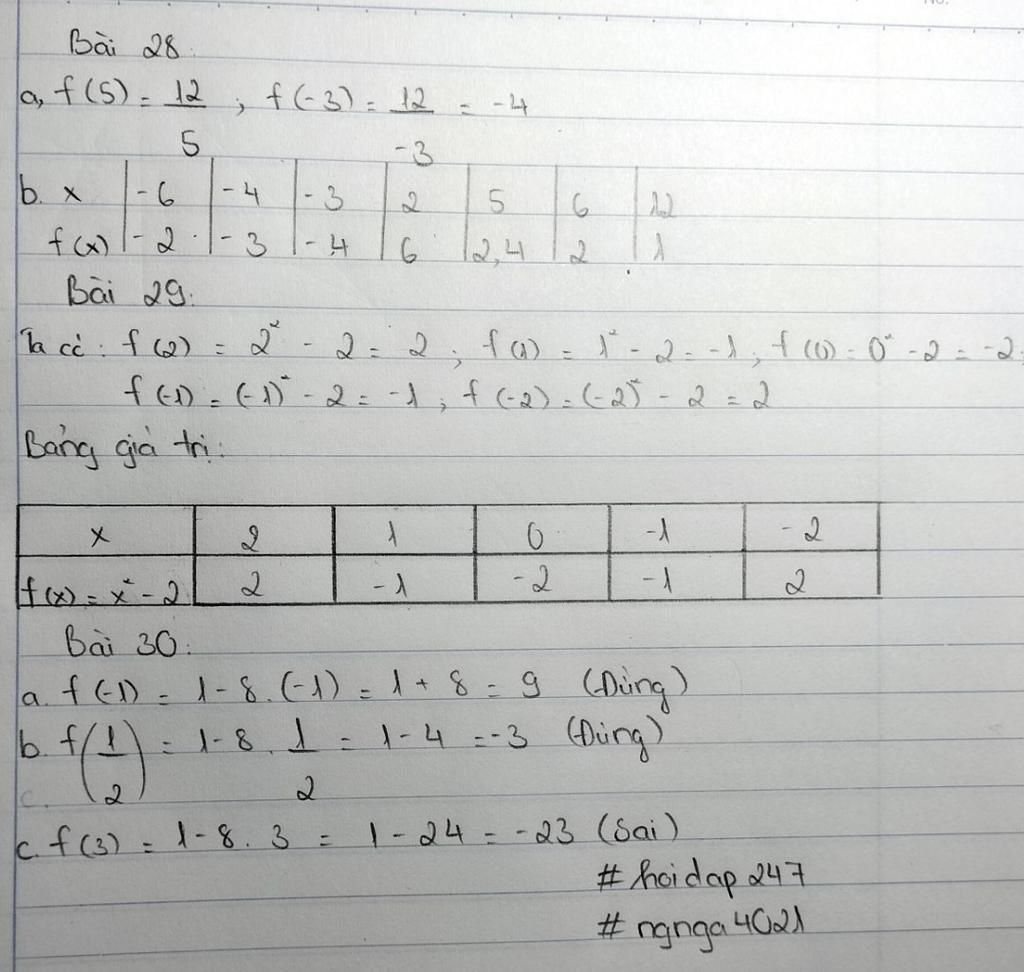 Bài 28.
a, f(5) = 12/5 ; f(-3) = 12/-3 = -4
b. x | -6 | -4 | -3 | 2 | 5 | 6 | 12
f(x) | -2 | -3 | -4 | 6 | 2,4 | 2 | 1
Bài 29.
Ta có: f(2) = 2² - 2 = 2 ; f(1) = 1² - 2 = -1 ; f(0) = 0² - 2 = -2;
f(-1) = (-1)² - 2 = -1 ; f(-2) = (-2)² - 2 = 2
Bảng giá trị:
x | 2 | 1 | 0 | -1 | -2
f(x) = x² - 2 | 2 | -1 | -2 | -1 | 2
Bài 30:
a. f(-1) = 1 - 8.(-1) = 1 + 8 = 9 (Đúng)
b. f(1/2) = 1 - 8 . 1/2 = 1 - 4 = -3 (Đúng)
c. f(3) = 1 - 8 . 3 = 1 - 24 = -23 (Sai)
# hoidap 247
# ngnga 4021